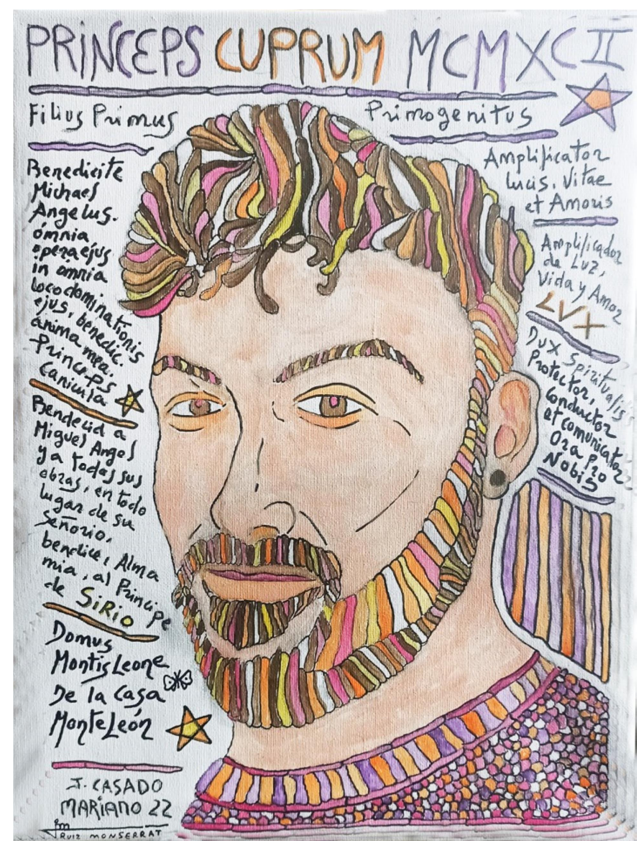 PRINCEPS CUPRUM MCMXCII
Filius Primus
Primogenitus
Benedicite
Michael
Angelus.
omnia
opera ejus
in omnia
loco dominationis
ejus, benedic
anima mea.
Princeps
Canicula
Bendecid a
Miguel Angel
y a todas sus
obras, en todo
lugar de su
Señorio,
bendice, Alma
mia, al Principe
de SiRio
Domus
Montis Leone
De la Casa
MonteLeón
J. CASADO
MARIANO 22
RUIZ MONSERRAT
Amplificator
lucis, Vitae
et Amoris
Amplificador
de Luz,
Vida y Amor
LVX
Dux Spiritualis
Protector,
Conductor
et comunicator
Ora Pro
Nobis